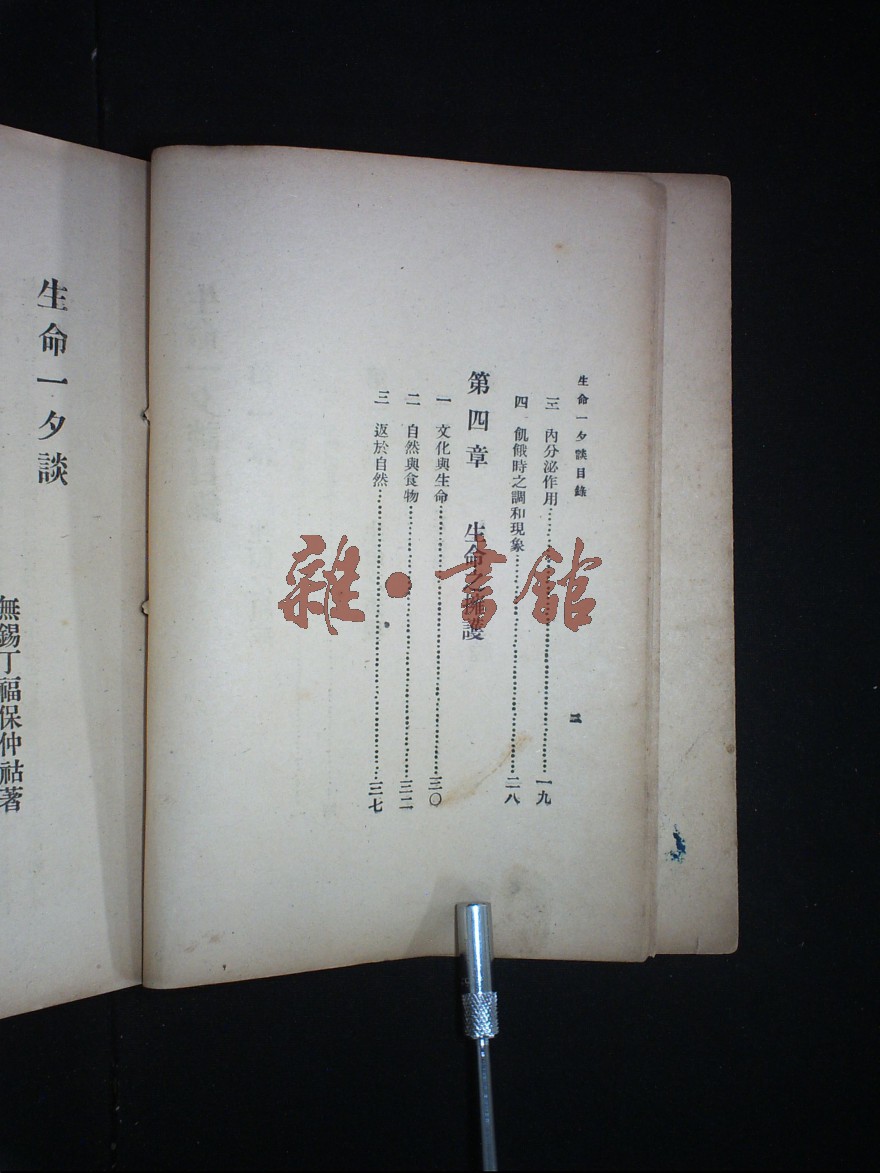 生命一夕談目錄
二
三 內分泌作用 一九
四 飢餓時之調和現象 二八
第四章 生命之擁護
一 文化與生命 三〇
二 自然與食物 三二
三 返於自然 三七
生命一夕談
無錫丁福保仲祜著
雜·書館